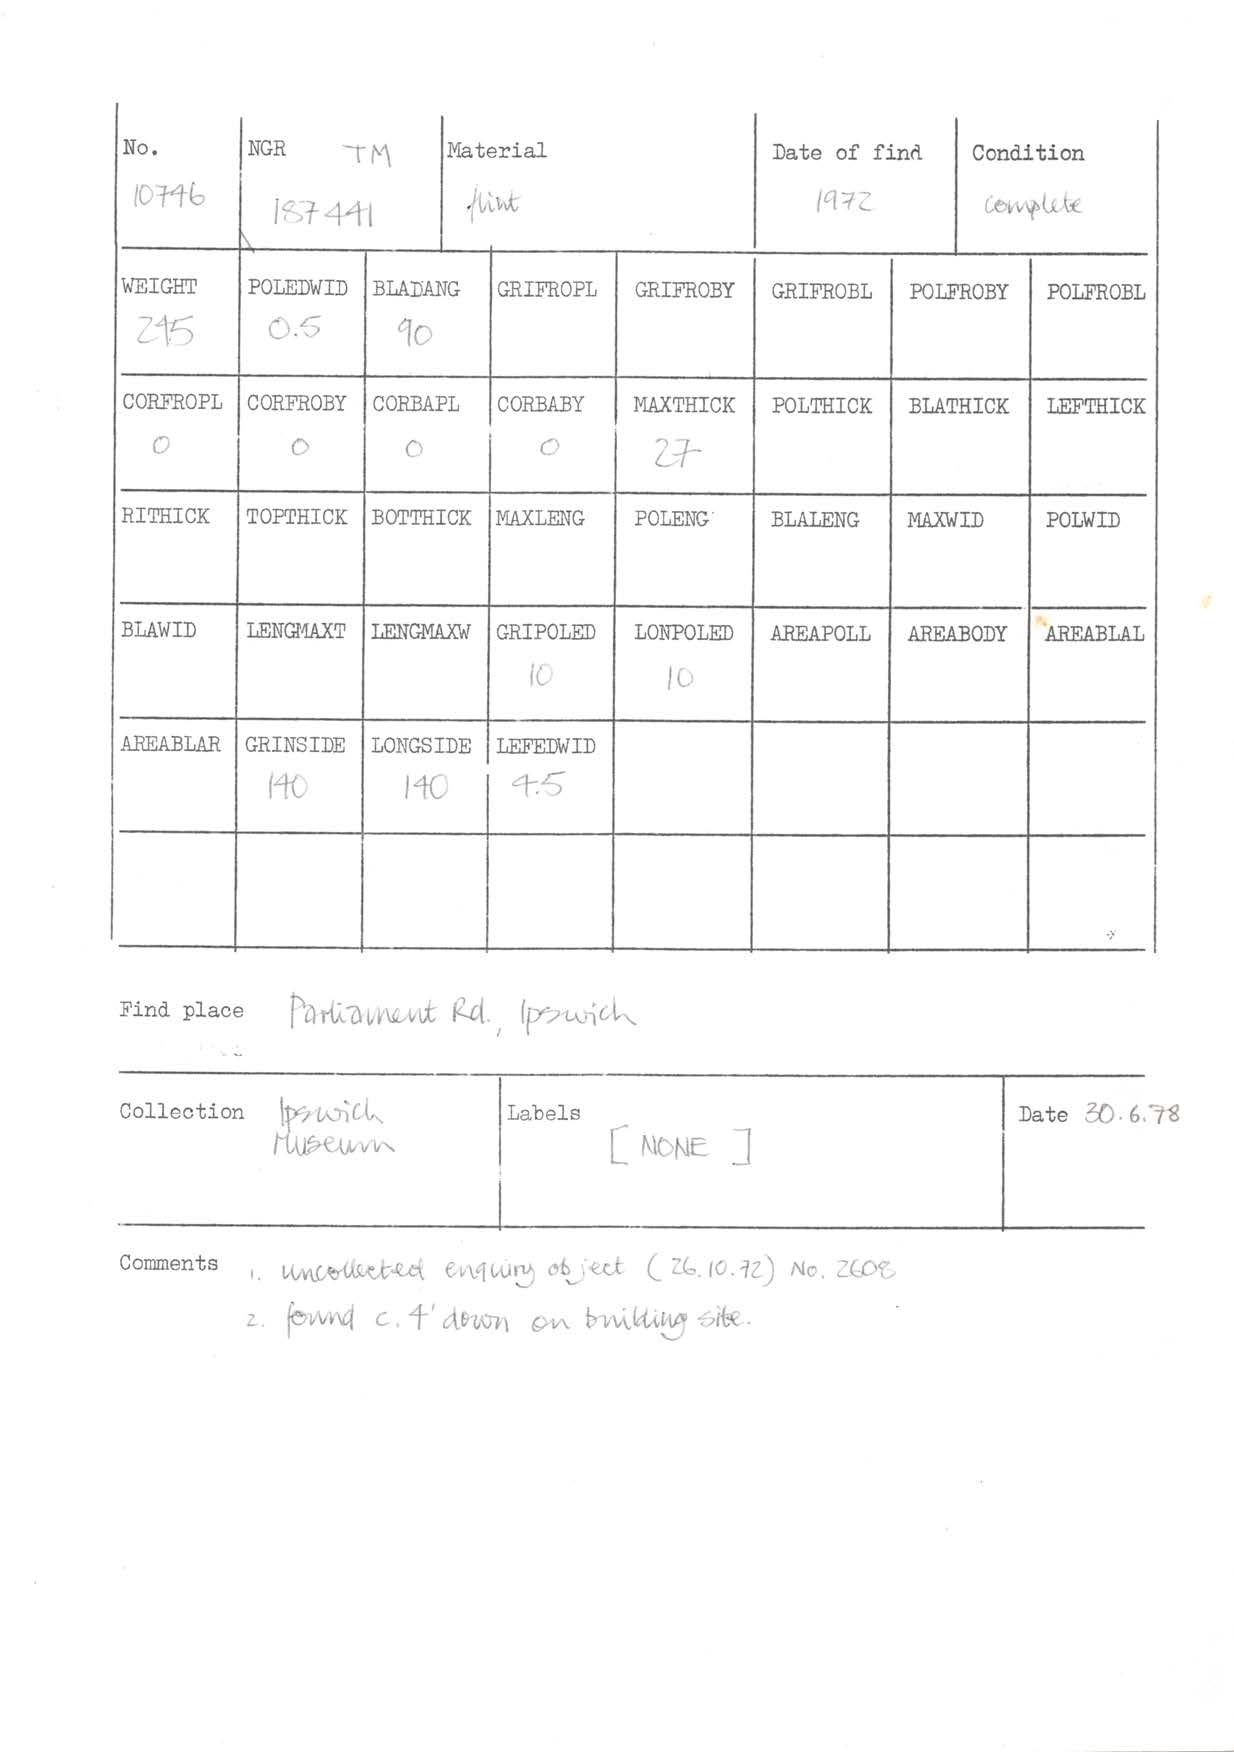 No. NGR TM Material Date of find Condition
10746 187441 flint 1972 complete
WEIGHT POLEDWID BLADANG GRIFROPL GRIFROBY GRIFROBL POLFROBY POLFROBL
245 0.5 90
CORFROPL CORFROBY CORBAPL CORBABY MAXTHICK POLTHICK BLATHICK LEFTHICK
0 0 0 0 27
RITHICK TOPTHICK BOTTHICK MAXLENG POLENG BLALENG MAXWID POLWID
BLAWID LENGMAXT LENGMAXW GRIPOLED LONPOLED AREAPOLL AREABODY AREABLAL
10 10
AREABLAR GRINSIDE LONGSIDE LEFEDWID
140 140 4.5
Find place Parliament Rd., Ipswich
Collection Ipswich Museum
Labels [NONE]
Date 30.6.78
Comments 1. uncollected enquiry object (26.10.72) No. 2608
2. found c. 4' down on building site.